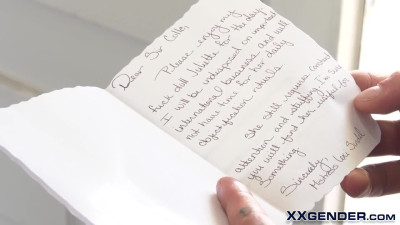 Dear Sir Cille,
Please enjoy my
fuck doll Nikette for the day
I will be indisposed on important
international business and will
not have time for her daily
objectification rituals
She still requires constant
attention and utility. I'm sure
you will find her useful for
Something.
Sincerely,
Mistress
XXGENDER.COM